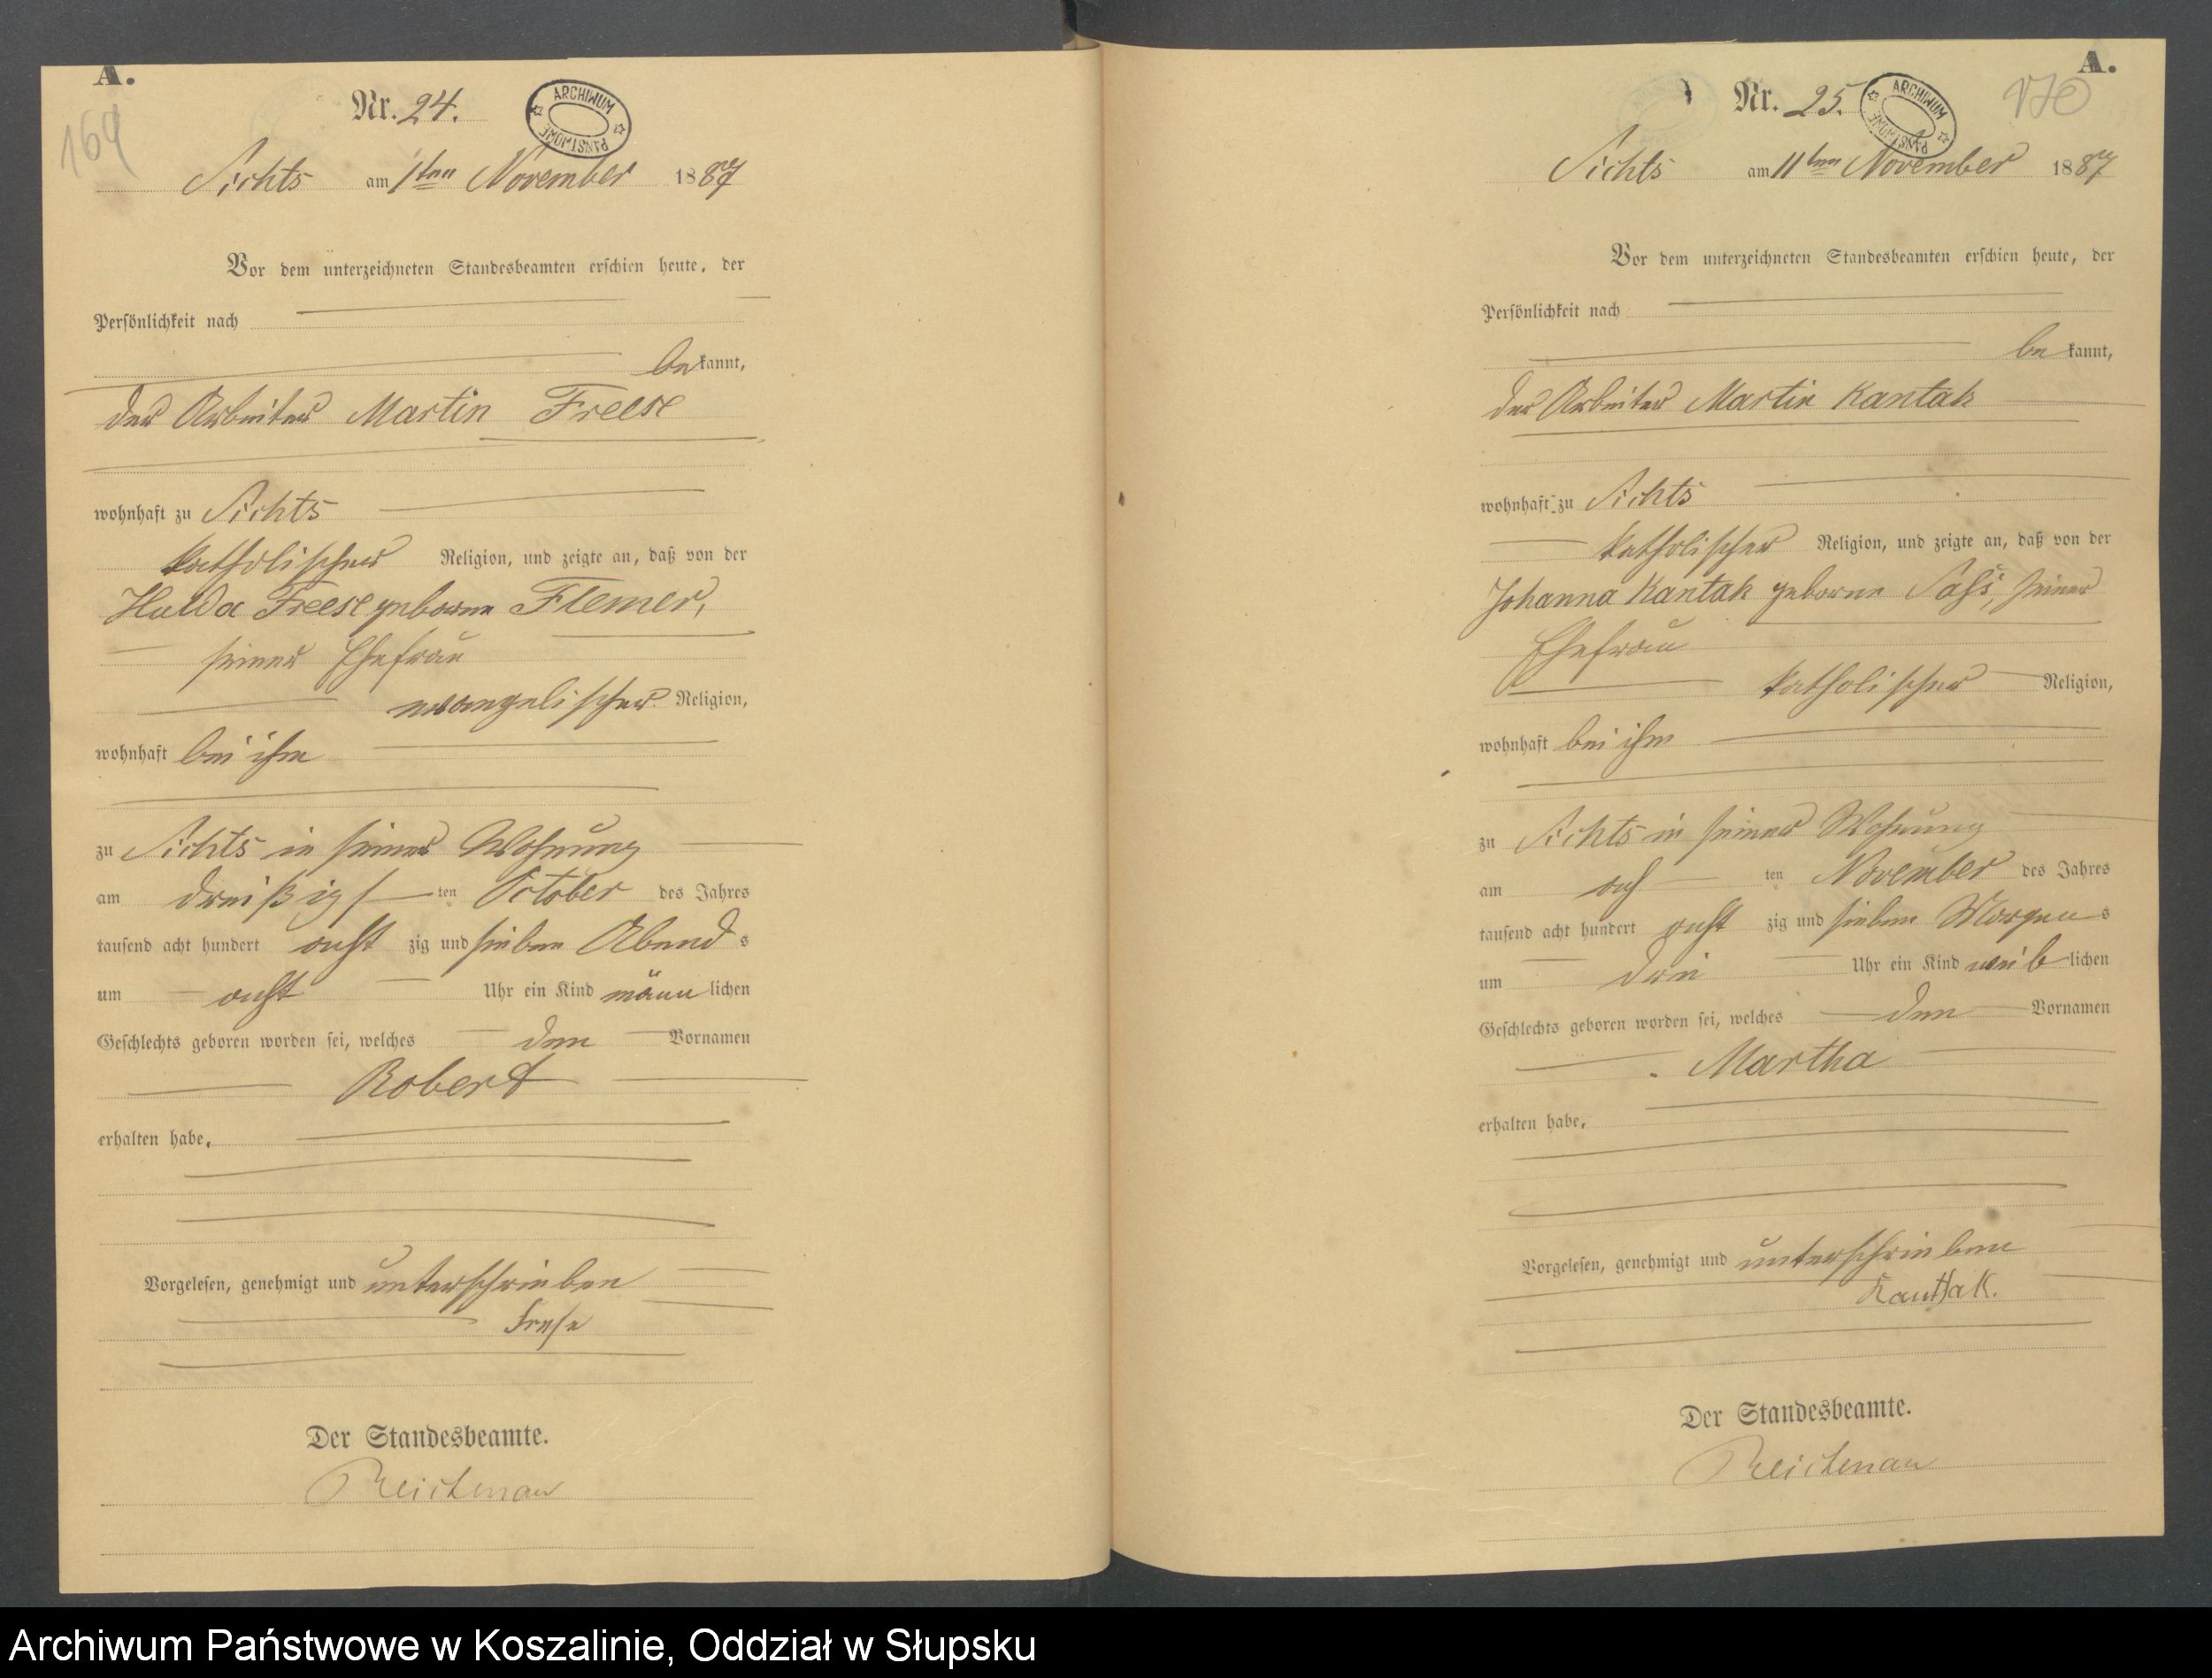 A.
169
Nr. 24.
ARCHIWUM PAŃSTWOWE
Sichts am 1ten November 1887
Vor dem unterzeichneten Standesbeamten erschien heute, der
Persönlichkeit nach
bekannt,
der Arbeiter Martin Freese
wohnhaft zu Sichts
katholischer Religion, und zeigte an, daß von der
Hulda Freese geborne Flemer,
seiner Ehefrau
evangelischer Religion,
wohnhaft bei ihm
zu Sichts in seiner Wohnung
am dreißigsten October des Jahres
tausend acht hundert achtzig und sieben Abends
um acht Uhr ein Kind männlichen
Geschlechts geboren worden sei, welches den Vornamen
Robert
erhalten habe.
Vorgelesen, genehmigt und unterschrieben
Frese
Der Standesbeamte.
Reichenau
A.
170
Nr. 25.
ARCHIWUM PAŃSTWOWE
Sichts am 11ten November 1887
Vor dem unterzeichneten Standesbeamten erschien heute, der
Persönlichkeit nach
bekannt,
der Arbeiter Martin Kantak
wohnhaft zu Sichts
katholischer Religion, und zeigte an, daß von der
Johanna Kantak geborne Saß, seiner
Ehefrau
katholischer Religion,
wohnhaft bei ihm
zu Sichts in seiner Wohnung
am achten November des Jahres
tausend acht hundert achtzig und sieben Morgens
um drei Uhr ein Kind weiblichen
Geschlechts geboren worden sei, welches den Vornamen
Martha
erhalten habe.
Vorgelesen, genehmigt und unterschrieben
Kanthak.
Der Standesbeamte.
Reichenau
Archiwum Państwowe w Koszalinie, Oddział w Słupsku